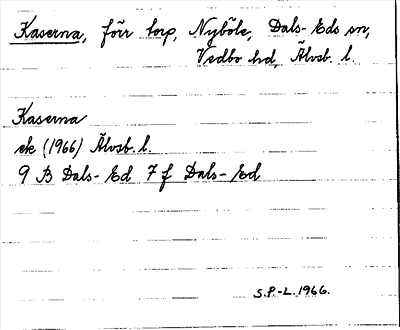 Kaserna, förr torp, Nyböle, Dals-Eds sn,
Vedbo hd, Älvsb. l.
Kaserna
ek (1966) Älvsb. l.
9 B Dals-Ed 7 f Dals-Ed
S.P-L. 1966.